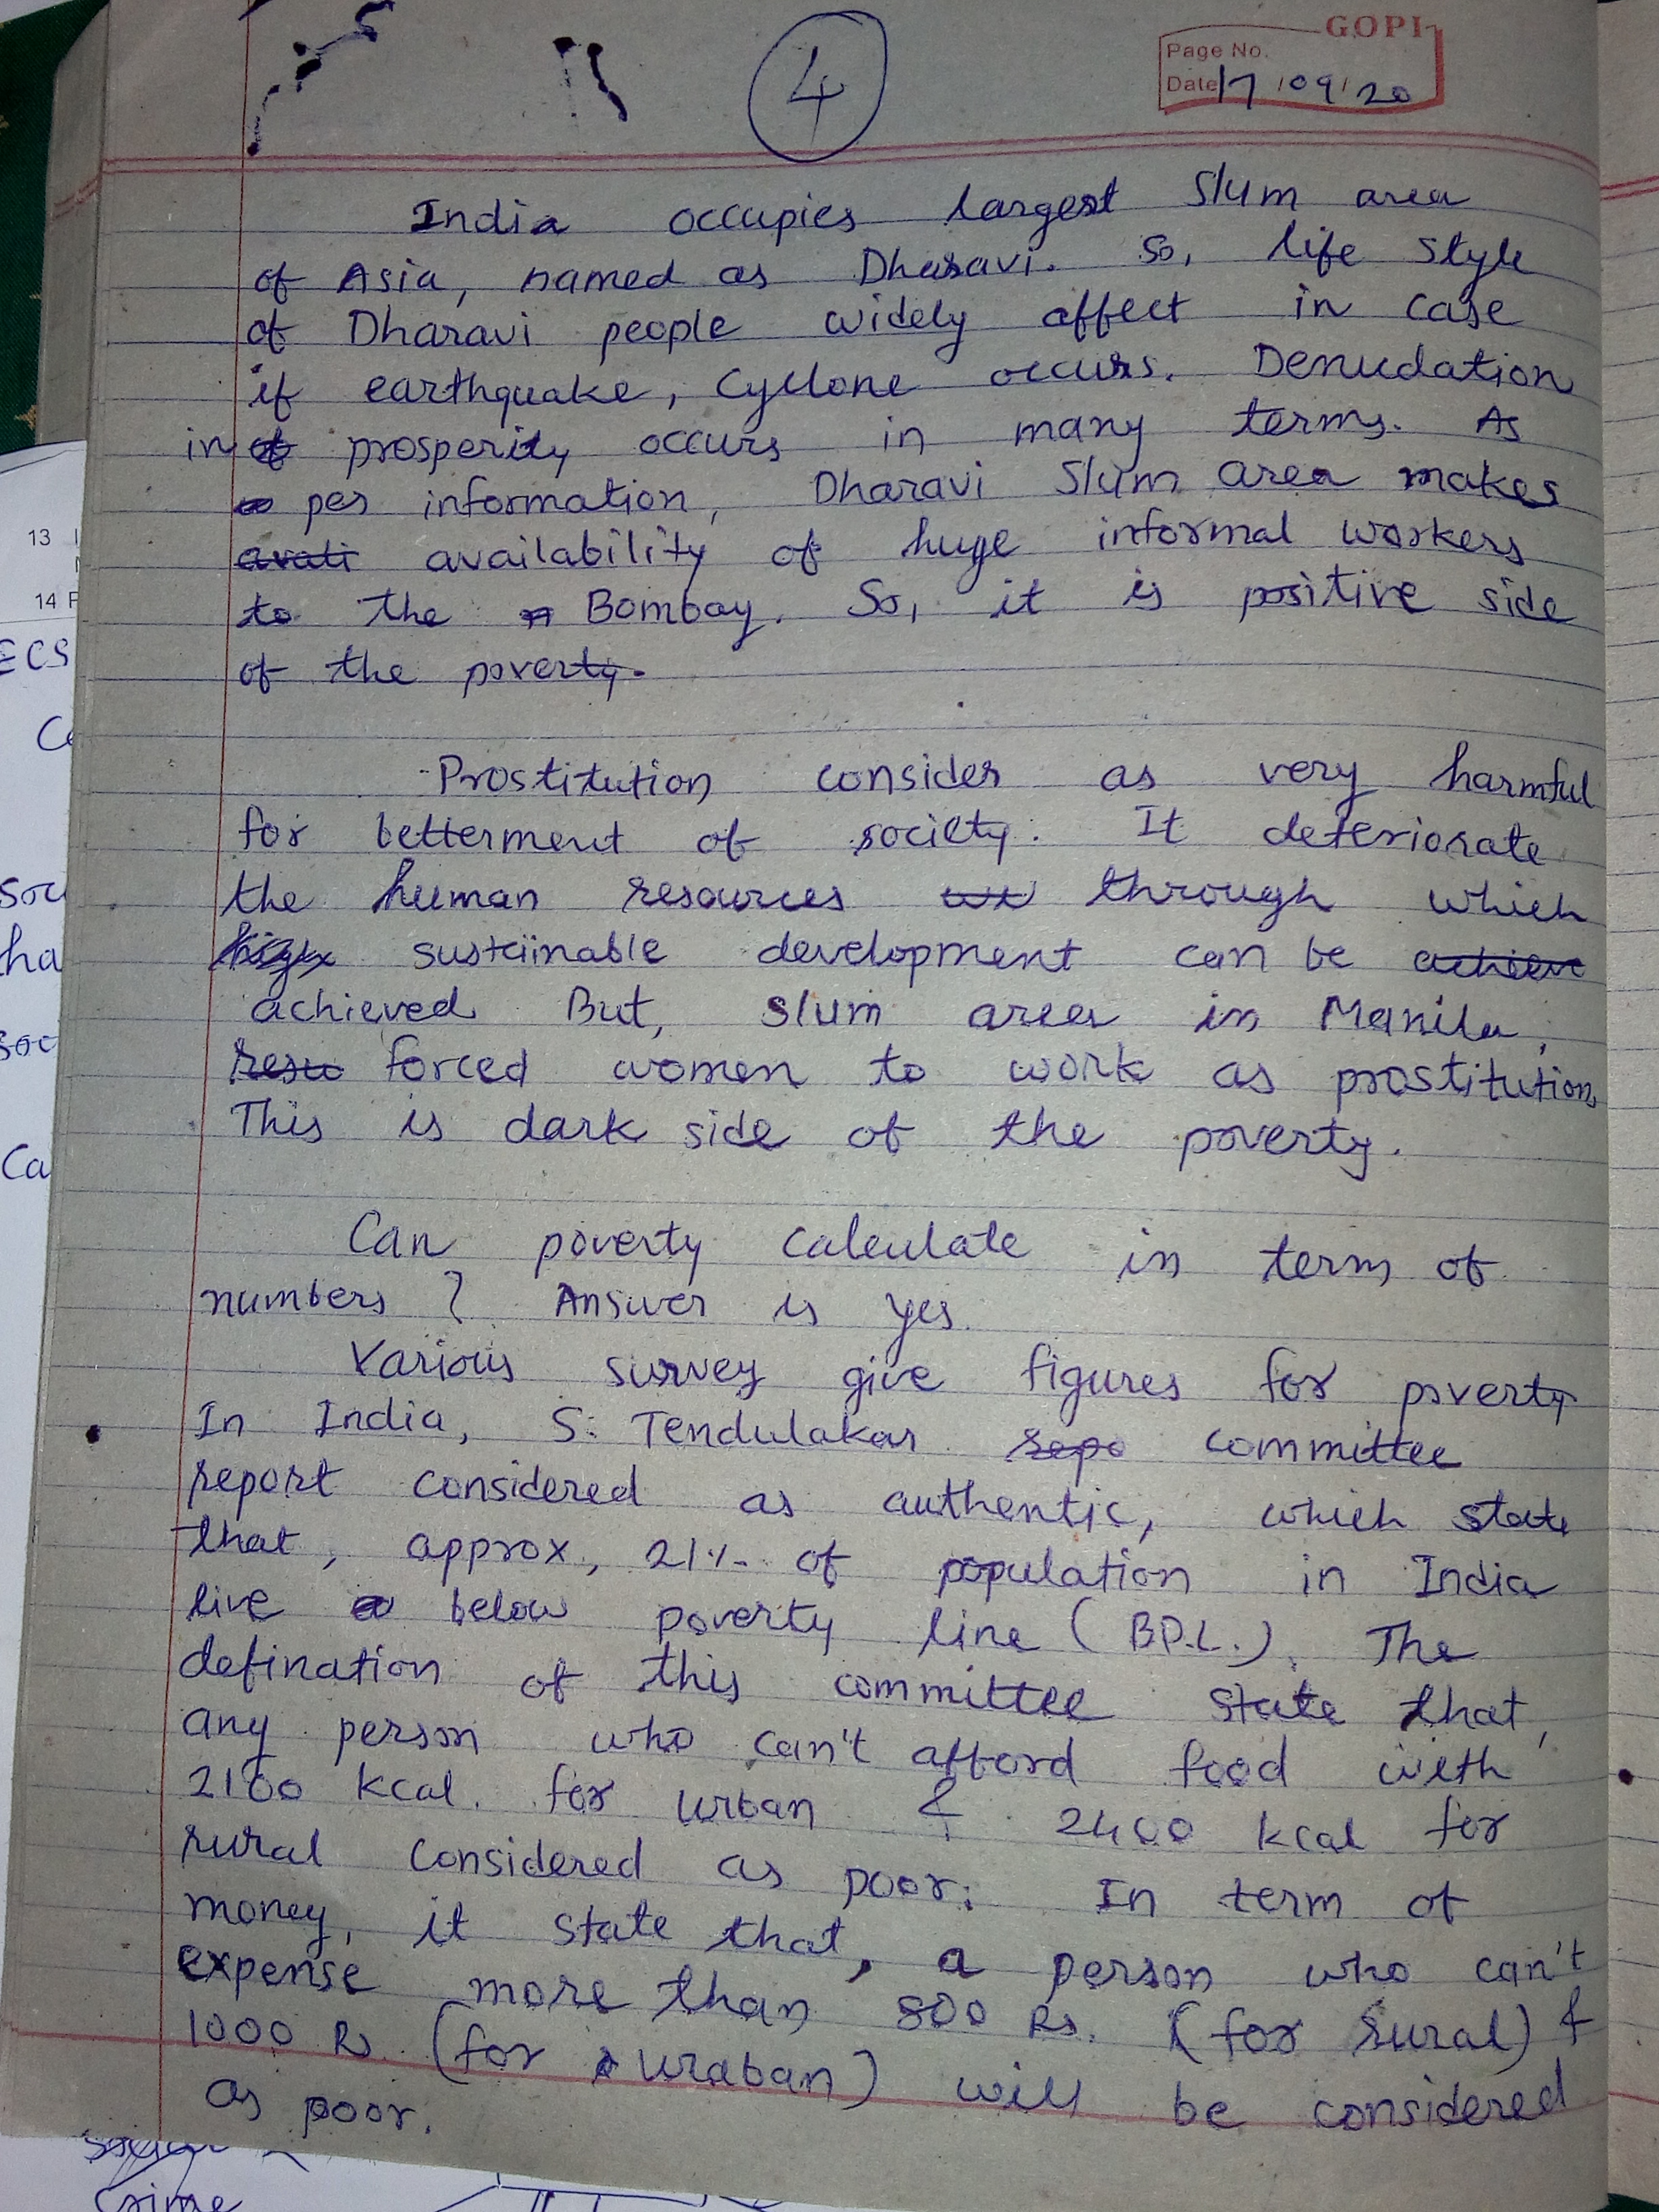 4
GOPI
Page No.
Date 17/09/20
India occupies largest slum area
of Asia, named as Dharavi. So, life style
of Dharavi people widely affect in case
if earthquake, Cyclone occurs. Denudation
in prosperity occurs in many terms. As
per information, Dharavi slum area makes
avati availability of huge informal workers
to the Bombay. So, it is positive side
of the poverty.
Prostitution consider as very harmful
for betterment of society. It deteriorate
the human resources through which
sustainable development can be achieve
achieved But, slum area in Manila,
forced women to work as prostitution,
This is dark side of the poverty.
Can poverty calculate in term of
numbers ? Answer is yes.
Various survey give figures for poverty
In India, S. Tendulakar repo committee
report considered as authentic, which state
that, approx, 21% of population in India
live below poverty line (B.P.L.). The
defination of this committee state that,
any person who can't afford food with
2100 kcal. for urban & 2400 kcal for
rural considered as poor. In term of
money, it state that, a person who can't
expense more than 800 Rs. (for rural) &
1000 Rs. (for uraban) will be considered
as poor.
13
14 F
ECS
Ca
crime